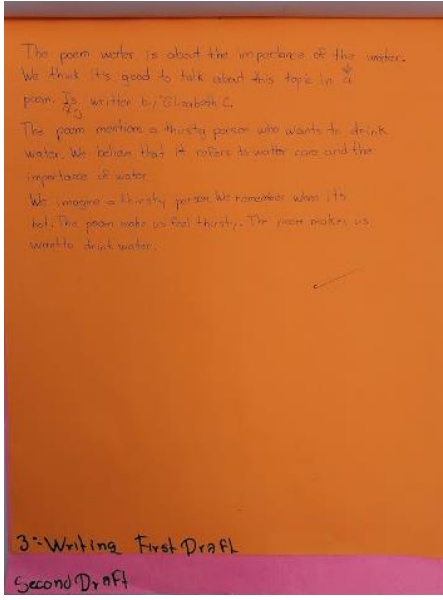 The poem water is about the importance of the water.
We think it's good to talk about this topic in a
poem. Is written by: Elizabeth C.
The poem mentions a thirsty person who wants to drink
water. We believe that it refers to watter care and the
importance of water
We imagine a thirsty person. We remember when its
hot. The poem make us feel thirsty. The poem makes us
want to drink water.
3:- Writing First Draft
Second Draft